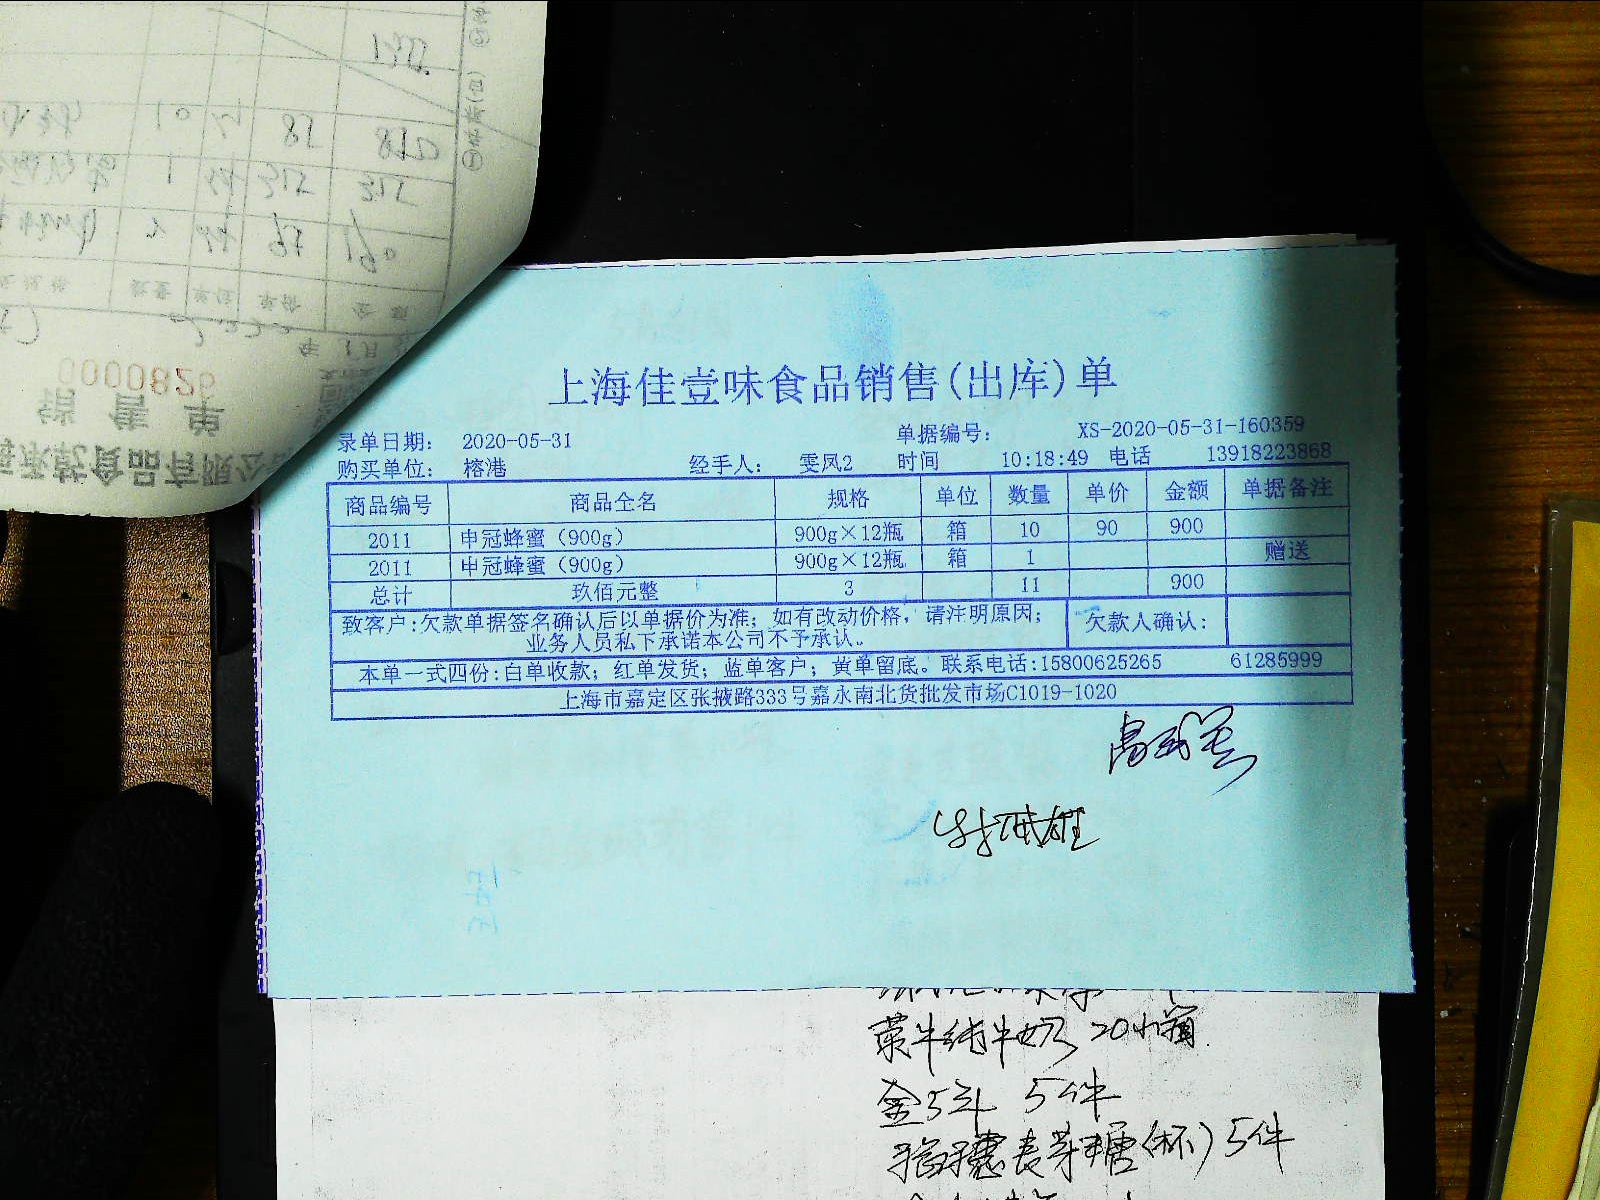 上海佳壹味食品销售(出库)单
录单日期: 2020-05-31 单据编号: XS-2020-05-31-160359
购买单位: 榕港 经手人: 雯凤2 时间 10:18:49 电话 13918223868
商品编号 商品全名 规格 单位 数量 单价 金额 单据备注
2011 申冠蜂蜜(900g) 900g×12瓶 箱 10 90 900
2011 申冠蜂蜜(900g) 900g×12瓶 箱 1 赠送
总计 玖佰元整 3 11 900
致客户:欠款单据签名确认后以单据价为准;如有改动价格,请注明原因; 欠款人确认:
业务人员私下承诺本公司不予承认。
本单一式四份:白单收款;红单发货;蓝单客户;黄单留底。联系电话:15800625265 61285999
上海市嘉定区张掖路333号嘉永南北货批发市场C1019-1020
菜牛纯牛奶 20小箱
金5斗 5件
5件
0000826
销售单
食品有限公
数量 单位 单价 金额
190
315 315
10 85 850